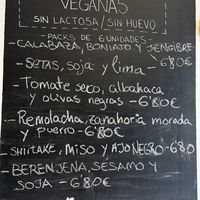 VEGANAS
SIN LACTOSA / SIN HUEVO
-PACKS DE 6 UNIDADES-
-CALABAZA, BONIATO Y JENGIBRE
6'80€
-SETAS, SOJA y lima - 6'80€
-Tomate seco, albahaca
y olivas negras - 6'80€
-Remolacha, zanahoria morada
y puerro - 6'80€
-SHIITAKE, MISO Y AJO NEGRO - 6'80
-BERENJENA, SÉSAMO Y
SOJA - 6'80€